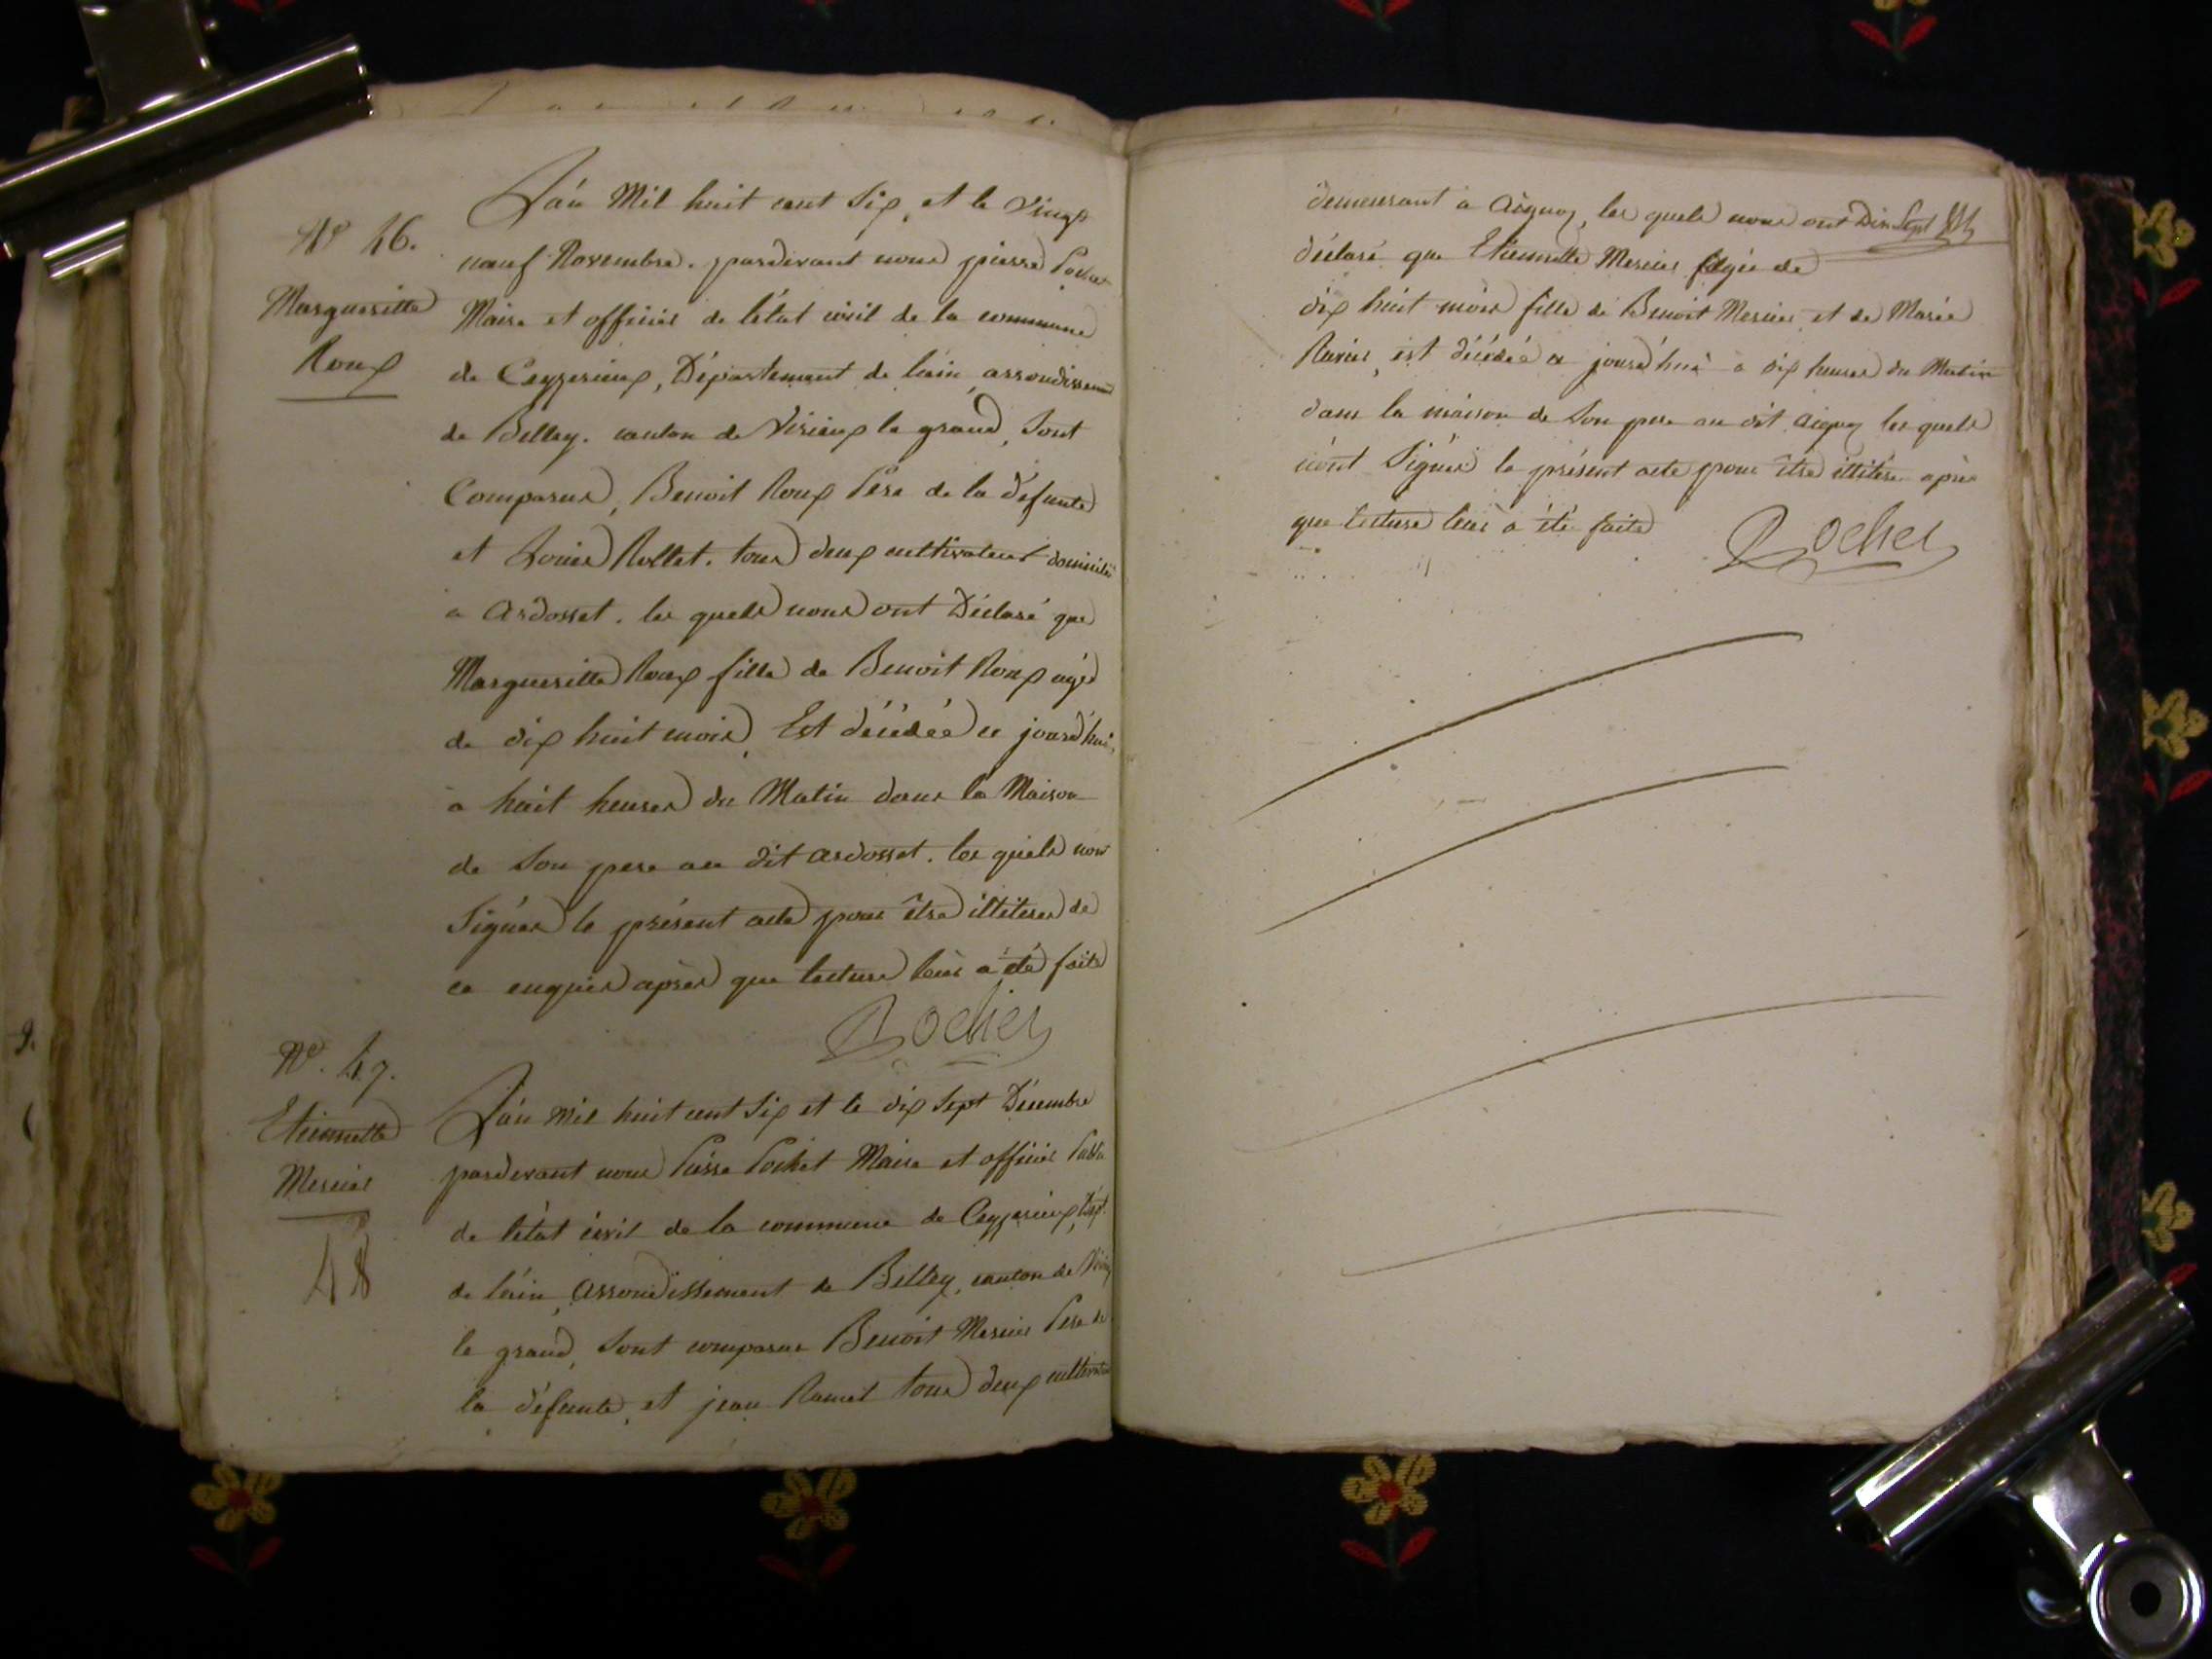 N° 46.
Margueritte
Roux
L'an Mil huit cent Six, et le Vingt
neuf Novembre. pardevant nous pierre Pochet
Maire et officier de l'état civil de la commune
de Ceyzerieux, Département de l'ain, arrondissement
de Belley. canton de Virieux le grand, Sont
Comparus, Benoit Roux Pere de la défunte
et Louis Rollet. tous deux cultivateurs domiciliés
a Ardosset. les quels nous ont Déclaré que
Margueritte Roux fille de Benoit Roux agée
de dix huit mois, Est décédée ce jourd'hui,
a huit heures du Matin dans la Maison
de Son pere au dit ardosset. les quels n'ont
Signés le présent acte pour être illiterés de
ce enquis après que lecture leur a été faite
Pochet
N°. 47.
Etiennette
Mercier
48
L'an Mil huit cent Six et le dix Sept Décembre
pardevant nous Pierre Pochet Maire et officier Public
de l'état civil de la commune de Ceyzerieux, Dépt.
de l'ain, arrondissement de Belley, canton de Virieux
le grand, Sont comparus Benoit Mercier Pere de
la défunte, et jean tous deux cultivateurs
Dix Sept
demeurant a Aignoz, les quels nous ont
déclaré que Etiennette Mercier agée de
dix huit mois fille de Benoit Mercier et de Marie
est décédée a jourd'hui a dix heures du Matin
dans la maison de Son pere au dit aignoz les quels
n'ont Signés le présent acte pour être illitéré après
que lecture leur a été faite
Pochet